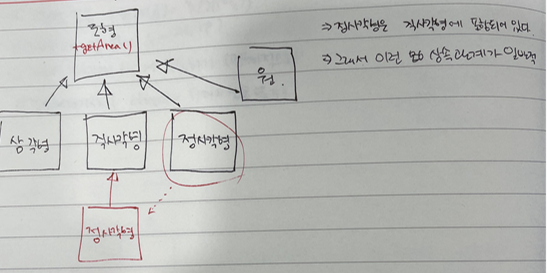 도형
+getArea()
원.
삼각형
직사각형
정사각형
정사각형
⇒ 정사각형은 직사각형에 포함되어 있다
⇒ 그래서 이런 상속관계가 일반적